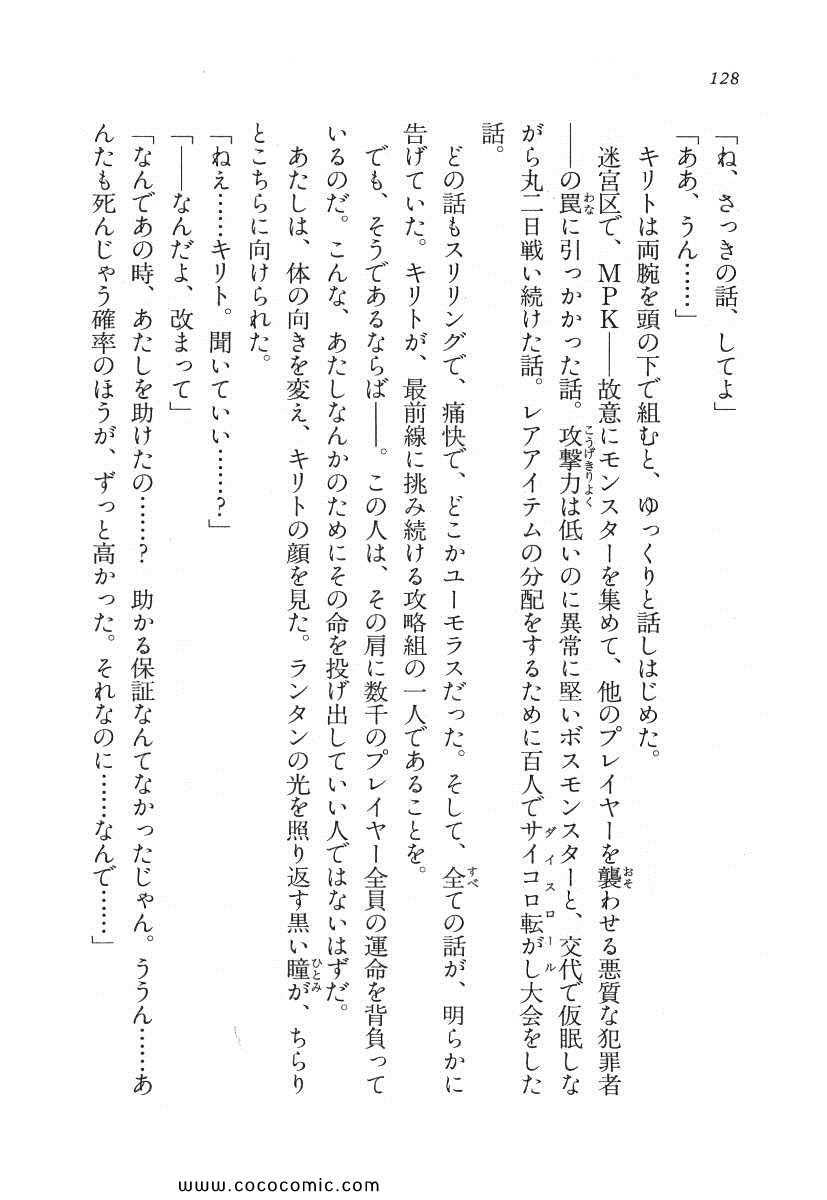 128
「ね、さっきの話、してよ」
「ああ、うん……」
　キリトは両腕を頭の下で組むと、ゆっくりと話しはじめた。
　迷宮区で、ＭＰＫ——故意にモンスターを集めて、他のプレイヤーを襲わせる悪質な犯罪者
——の罠に引っかかった話。攻撃力は低いのに異常に堅いボスモンスターと、交代で仮眠しな
がら丸二日戦い続けた話。レアアイテムの分配をするために百人でサイコロ転がし大会をした
話。
　どの話もスリリングで、痛快で、どこかユーモラスだった。そして、全ての話が、明らかに
告げていた。キリトが、最前線に挑み続ける攻略組の一人であることを。
　でも、そうであるならば——。この人は、その肩に数千のプレイヤー全員の運命を背負って
いるのだ。こんな、あたしなんかのためにその命を投げ出していい人ではないはずだ。
　あたしは、体の向きを変え、キリトの顔を見た。ランタンの光を照り返す黒い瞳が、ちらり
とこちらに向けられた。
「ねぇ……キリト。聞いていい……？」
「——なんだよ、改まって」
「なんであの時、あたしを助けたの……？　助かる保証なんてなかったじゃん。ううん……あ
んたも死んじゃう確率のほうが、ずっと高かった。それなのに……なんで……」
わな
こうげきりょく
おそ
ダイスロール
すべ
ひとみ
www.cococomic.com